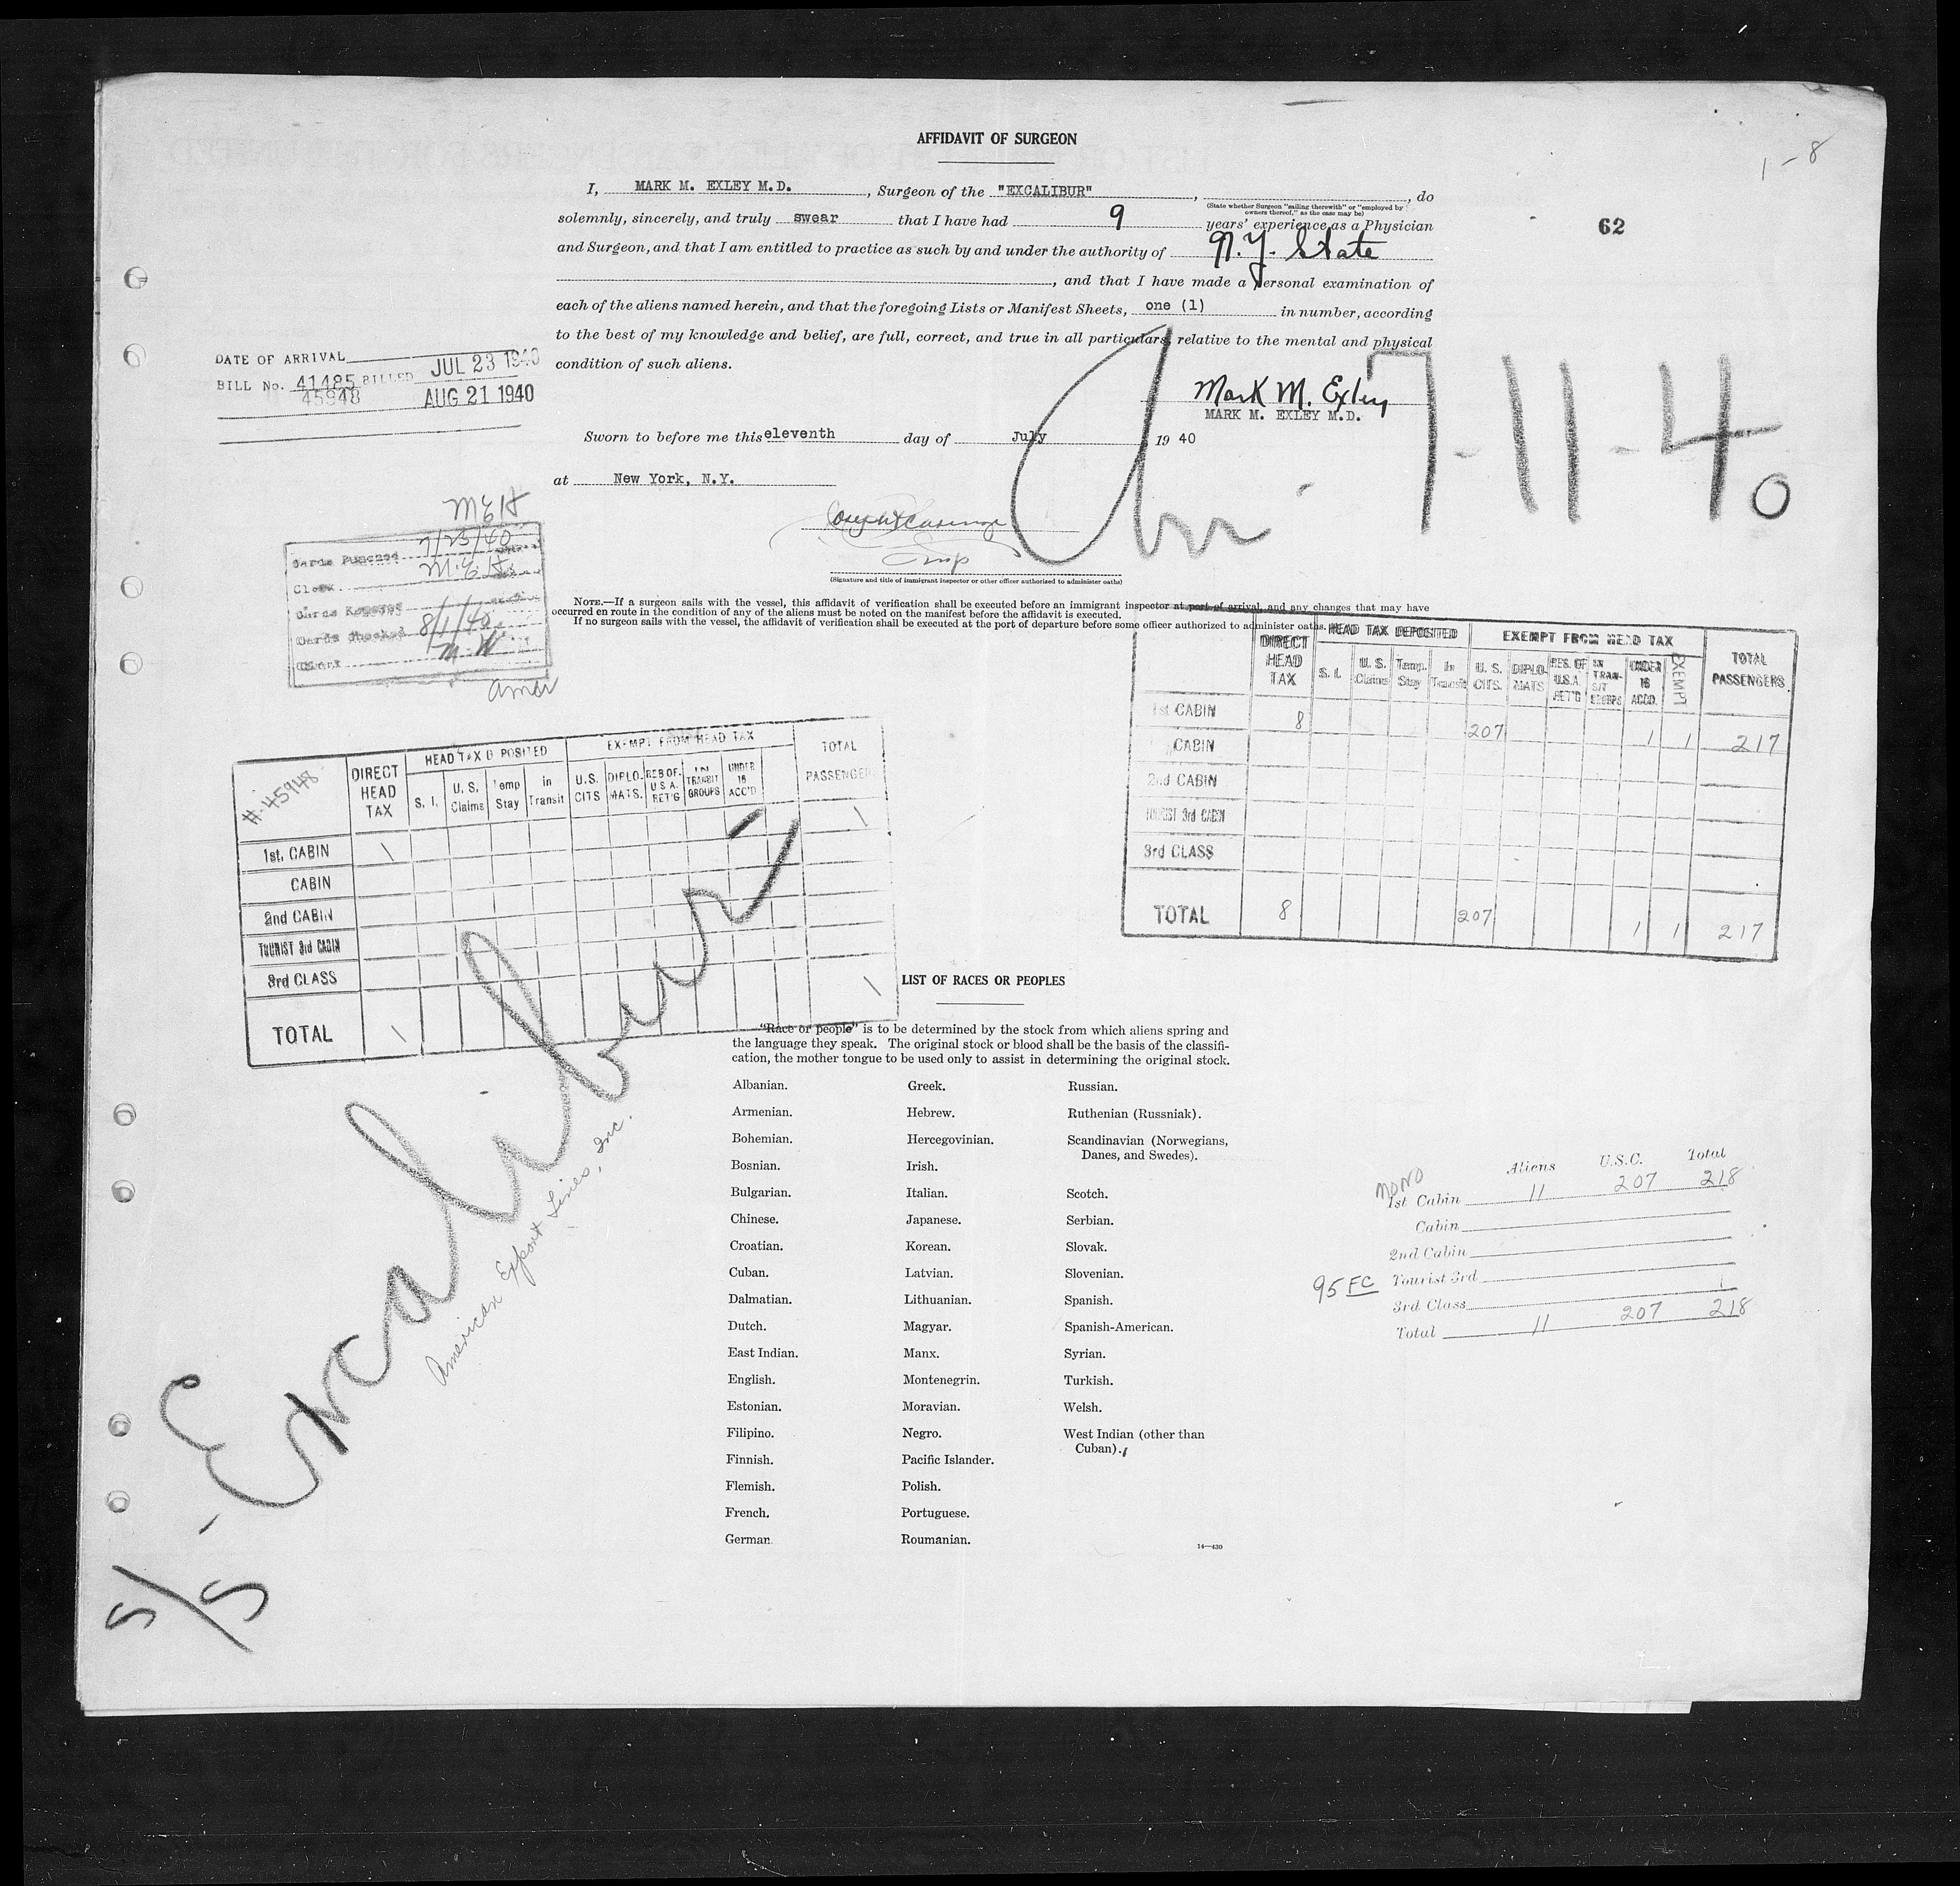 AFFIDAVIT OF SURGEON
1-8
62
I, MARK M. EXLEY M.D., Surgeon of the "EXCALIBUR", do
(State whether Surgeon "sailing therewith" or "employed by owners thereof," as the case may be)
solemnly, sincerely, and truly swear that I have had 9 years' experience as a Physician
and Surgeon, and that I am entitled to practice as such by and under the authority of N.Y. State
, and that I have made a personal examination of
each of the aliens named herein, and that the foregoing Lists or Manifest Sheets, one (1) in number, according
to the best of my knowledge and belief, are full, correct, and true in all particulars, relative to the mental and physical
condition of such aliens.
DATE OF ARRIVAL
BILL No. 41485 BILLED JUL 23 1940
45948 AUG 21 1940
Mark M. Exley
MARK M. EXLEY M.D.
Arr 7-11-40
Sworn to before me this eleventh day of July, 19 40
at New York, N.Y.
Insp
(Signature and title of immigrant inspector or other officer authorized to administer oaths)
MEH
Cards Punched 7/23/40
Clerk M.E.H.
Cards Checked 8/1/40
Clerk M.W.
NOTE.—If a surgeon sails with the vessel, this affidavit of verification shall be executed before an immigrant inspector at port of arrival, and any changes that may have
occurred en route in the condition of any of the aliens must be noted on the manifest before the affidavit is executed.
If no surgeon sails with the vessel, the affidavit of verification shall be executed at the port of departure before some officer authorized to administer oaths.
DIRECT HEAD TAX
HEAD TAX DEPOSITED
EXEMPT FROM HEAD TAX
TOTAL PASSENGERS
S. I. U. S. Claims Temp. Stay In Transit U. S. CITS. DIPLO-MATS RES. OF U.S.A. RET'G IN TRAN-SIT GROUPS UNDER 16 ACCD. EXEMPT
1st CABIN 8 207 1 1 217
CABIN
2nd CABIN
TOURIST 3rd CABIN
3rd CLASS
TOTAL 8 207 1 1 217
#-45948
DIRECT HEAD TAX
HEAD TAX D POSITED
EXEMPT FROM HEAD TAX
TOTAL PASSENGER
S. I. U. S. Claims Temp Stay in Transit U.S. CITS DIPLO. MATS. RES OF. U.S.A. RET'G TRANSIT GROUPS UNDER 16 ACC'D
1st. CABIN \ \
CABIN
2nd CABIN
TOURIST 3rd CABIN
3rd CLASS
TOTAL \ \
S/S - Excalibur
American Export Lines, Inc.
LIST OF RACES OR PEOPLES
"Race or people" is to be determined by the stock from which aliens spring and
the language they speak. The original stock or blood shall be the basis of the classifi-
cation, the mother tongue to be used only to assist in determining the original stock.
Albanian.
Armenian.
Bohemian.
Bosnian.
Bulgarian.
Chinese.
Croatian.
Cuban.
Dalmatian.
Dutch.
East Indian.
English.
Estonian.
Filipino.
Finnish.
Flemish.
French.
German.
Greek.
Hebrew.
Hercegovinian.
Irish.
Italian.
Japanese.
Korean.
Latvian.
Lithuanian.
Magyar.
Manx.
Montenegrin.
Moravian.
Negro.
Pacific Islander.
Polish.
Portuguese.
Roumanian.
Russian.
Ruthenian (Russniak).
Scandinavian (Norwegians,
Danes, and Swedes).
Scotch.
Serbian.
Slovak.
Slovenian.
Spanish.
Spanish-American.
Syrian.
Turkish.
Welsh.
West Indian (other than
Cuban).
14—430
Aliens U.S.C. Total
MONO
1st Cabin 11 207 218
Cabin
2nd Cabin
95 FC Tourist 3rd
3rd Class
Total 11 207 218